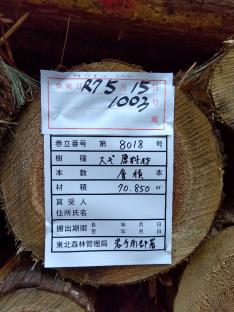 R7 5 15
1003号
巻立番号 第 8018 号
樹種 スギ 原料材
本数 層積 本
材積 70.850 m³
買受人
住所氏名
搬出期限 自 年 月 日
至 年 月 日
東北森林管理局 岩手南部署